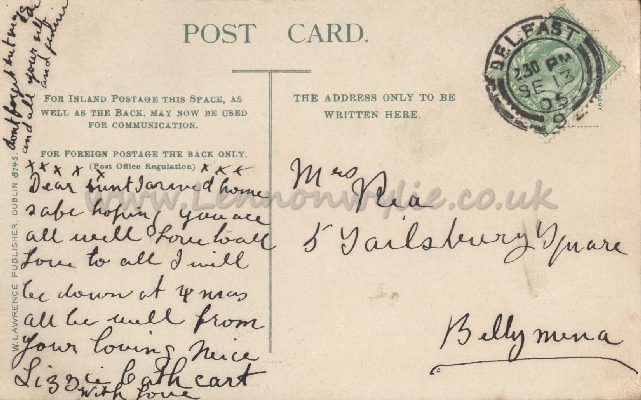 dont forget
and all your self
and
POST CARD.
BELFAST
2.30 PM
SE 13
05
9
FOR INLAND POSTAGE THIS SPACE, AS
WELL AS THE BACK, MAY NOW BE USED
FOR COMMUNICATION.
FOR FOREIGN POSTAGE THE BACK ONLY.
(Post Office Regulation)
THE ADDRESS ONLY TO BE
WRITTEN HERE.
x x x x x x x x x
Dear Aunt I arived home
safe hoping you are
all well love to all
love to all I will
be down at Xmas
all be well from
Your loving neice
Lizzie Cathcart
with love
Mrs
Rea
5 Tailsbury Square
Bellymena
W. LAWRENCE, PUBLISHER, DUBLIN
www.Lennonwylie.co.uk